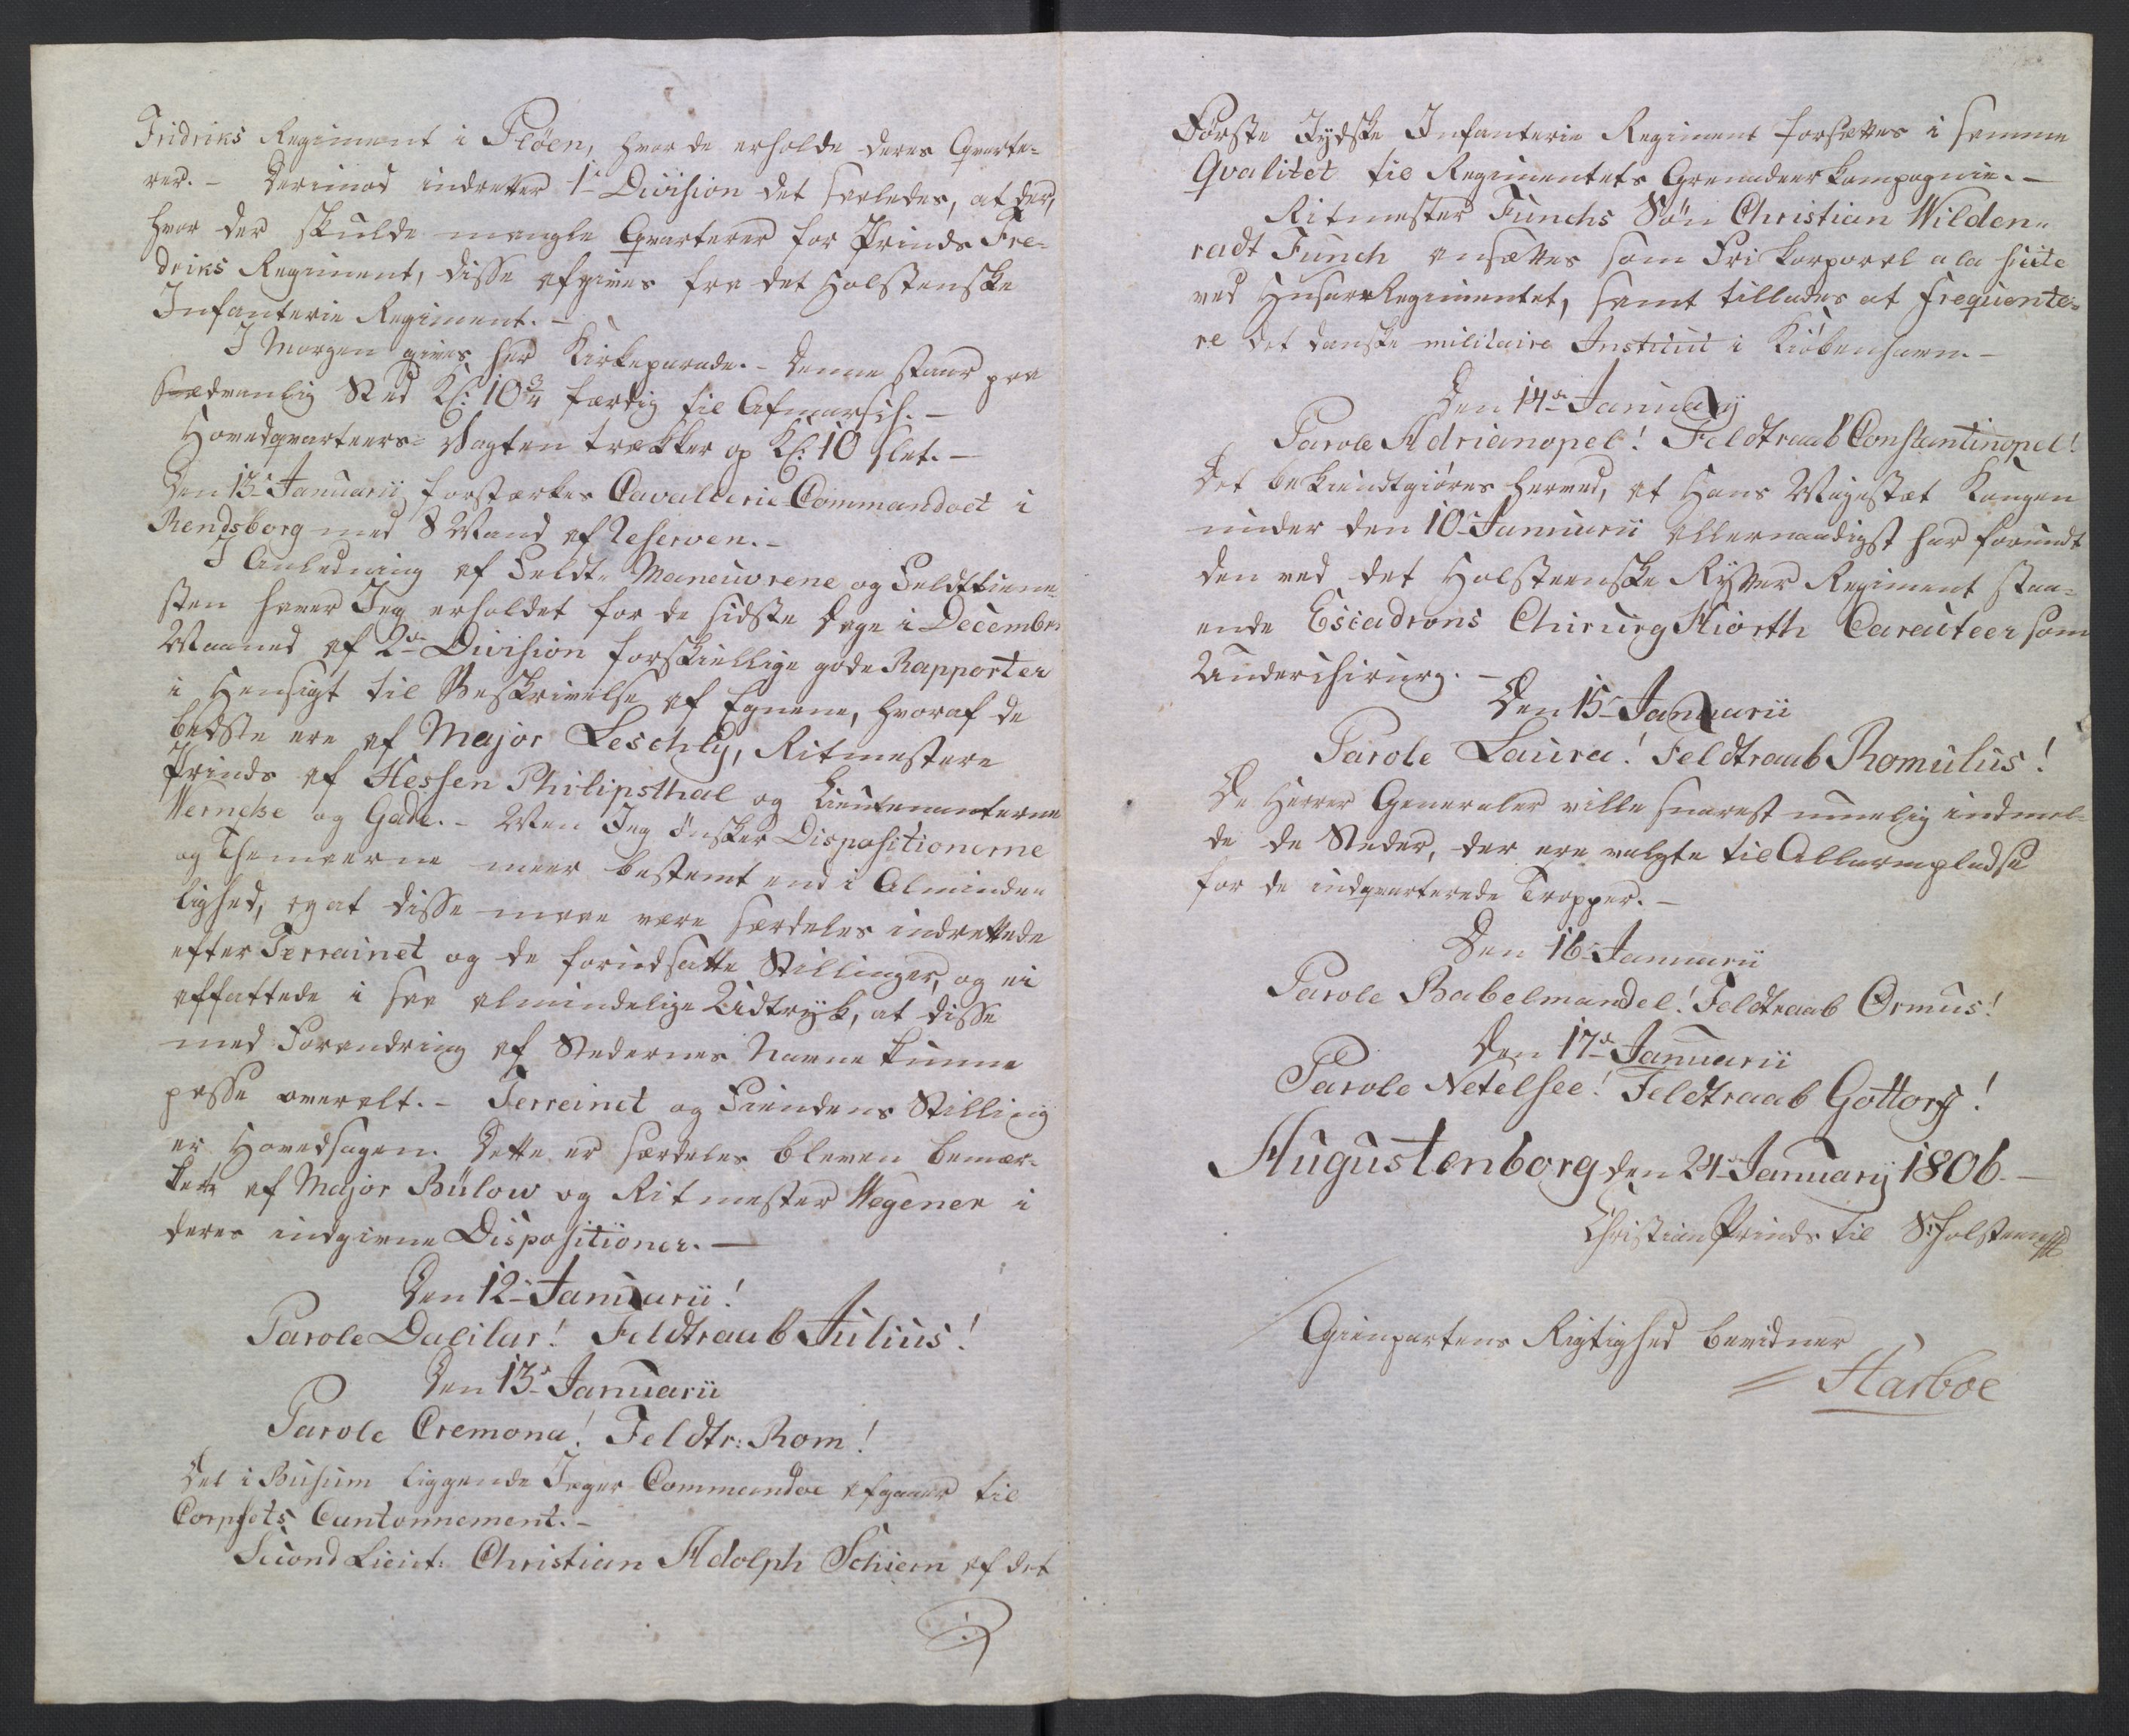 Fridriks Regiment i Pløen, hvor de erholde deres Qvarte-
rer. - Derimod indretter 1ste Division det saaledes, at der,
hvor der skulde mangle Qvarterer for Prinds Fre-
driks Regiment, disse afgives fra det Holstenske
Infanterie Regiment. -
I Morgen gives her Kirkeparade. - Denne staaer paa
sædvanlig Sted Kl: 10¾ færdig til Afmarsch. -
Hovedqvarteers-Vagten trækker op Kl: 10 slet. -
Den 13de Januarii forstærkes Cavallerie-Commandoet i
Rendsborg med 8 Mand af Reserven. -
I Anledning af Feldt-Maneuvrene og Feldttiene-
sten haver Jeg erholdet for de sidste Dage i December
Maaned af 2den Division forskiellige gode Rapporter
i Hensigt til Beskrivelse af Egnene, hvoraf de
bedste ere af Major Leschly, Ritmestere
Prinds af Hessen Philipsthal og Lieutenanterne
Wernche og Gade. - Men Jeg ønsker Dispositionerne
og Themaerne meer bestemt end i Alminde-
lighed, og at disse maae være særdeles indrettede
efter Terrainet og de forudsatte Stillinger, og ei
affattede i saa almindelige Udtryk, at disse
med Forandring af Stedernes Navne kunne
passe overalt. - Terreinet og Fiendens Stilling
er Hovedsagen. Dette er særdeles bleven bemær-
ket af Major Bülow og Ritmester Wegener i
deres indgivne Dispositioner. -
Den 12- Januarii!
Parole Dalilar! Feldtraab Julius!
Den 13- Januarii
Parole Cremona! Feldtr: Rom!
Det i Busum liggende Jæger Commandoe afgaaer til
Corpsets Cantonnement. -
Second Lieut: Christian Adolph Schiern af det
Første Jydske Infanterie Regiment forsættes i samme
Qvalitet til Regimentets Grenadeerkompagnie. -
Ritmester Funchs Søn Christian Wilden-
radt Funch ansættes som Frikorporal a la suite
ved HusarRegimentet, samt tillades at frequente-
re det danske militaire Institut i Kiøbenhavn. -
Den 14de Januarij
Parole Adrianopel! Feldtraab Constantinopel!
Det bekiendtgiøres herved, at Hans Majestæt Kongen
under den 10- Januarii allernaadigst har forundt
den ved det Holsteenske Rytter Regiment staa-
ende Escadrons Chirurg Hiorth Caracteer som
Underchirurg. -
Den 15- Januarii
Parole Laura! Feldtraab Romulus!
De Herrer Generaler ville snarest muelig indmel-
de de Steder, der ere valgte til Allarmpladse
for de indqvarterede Tropper. -
Den 16- Januarii
Parole Babelmandel! Feldtraab Ormus!
Den 17de Januarii
Parole Netelsee! Feldtraab Gottorff!
Augustenborg den 24- Januarij 1806. -
Christian Prinds til S: Holsteen
Gienpartens Rigtighed bevidner
Harboe